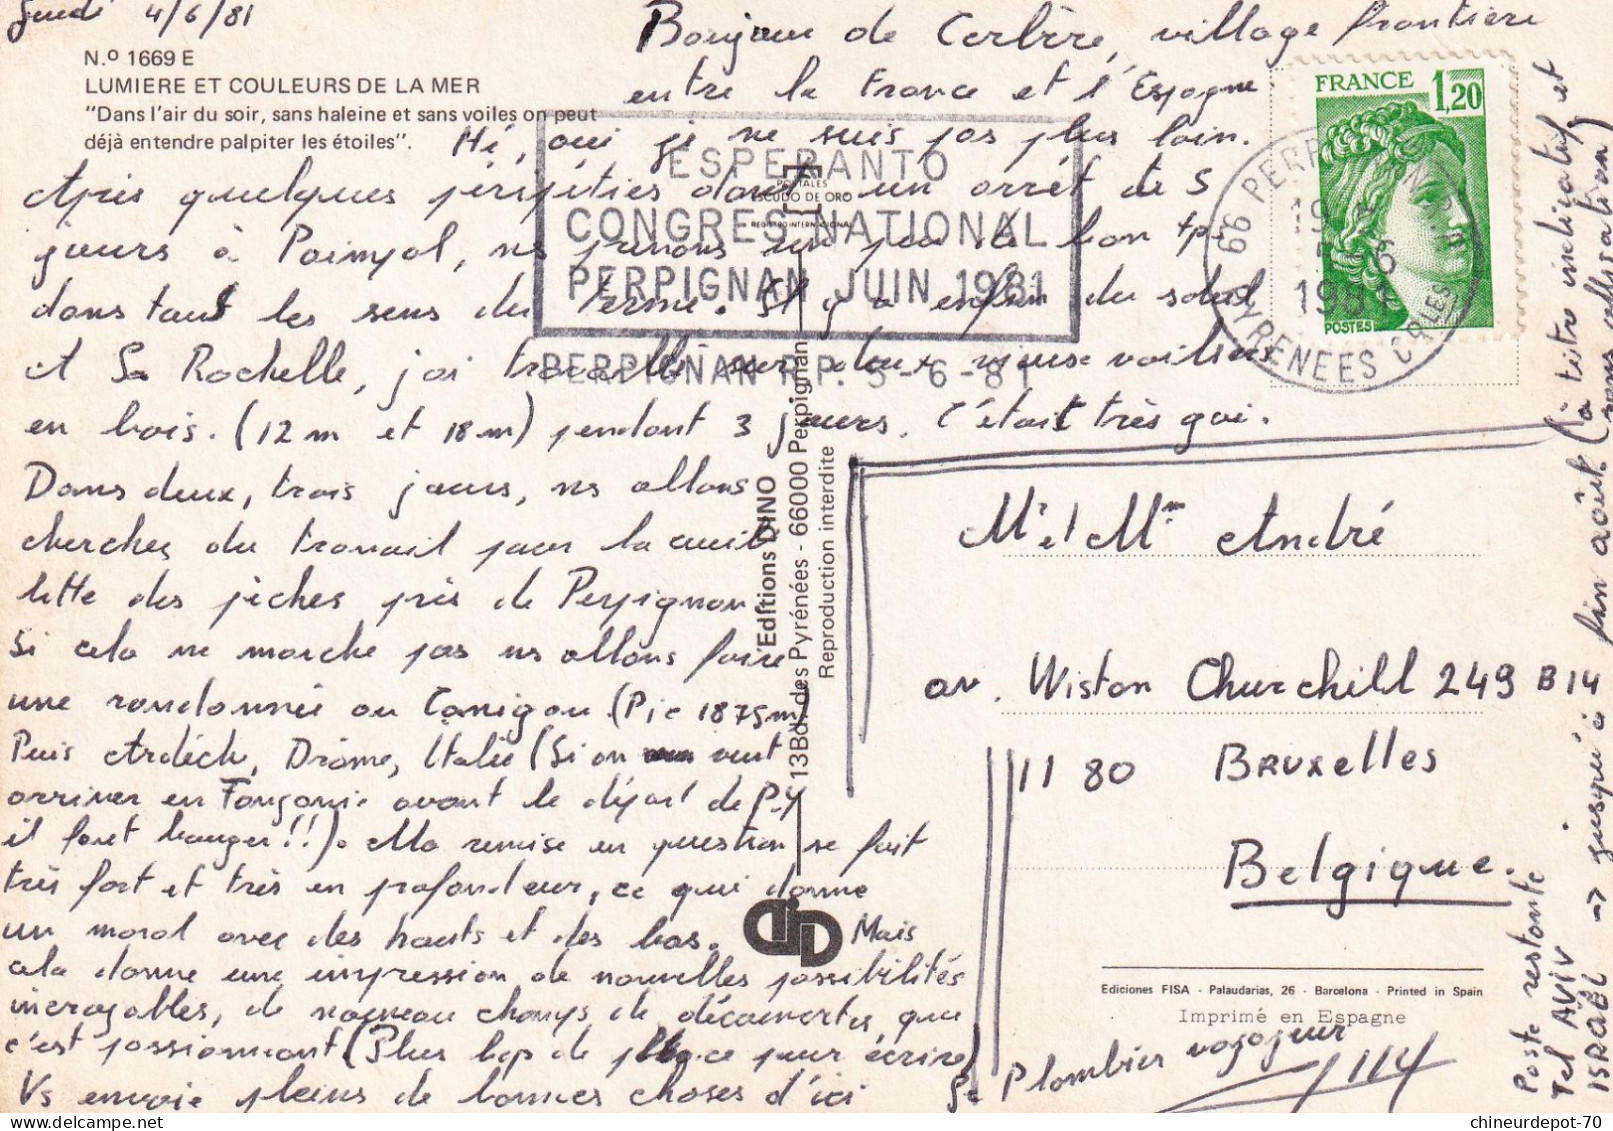 Jeudi 4/6/81
N.º 1669 E
LUMIERE ET COULEURS DE LA MER
"Dans l'air du soir, sans haleine et sans voiles on peut
déjà entendre palpiter les étoiles".
Bonjour de Cerbère, village frontière
entre la France et l'Espagne
Hé, oui je ne suis pas plus loin.
Après quelques péripéties dont un arrêt de 5
jours à Paimpol, ns prenons un peu de bon tps
dans tous les sens du terme. Il y a enfin du soleil
et La Rochelle, j'ai travaillé sur deux vieux voiliers
en bois. (12 m et 18 m) pendant 3 jours. C'était très gai.
Dans deux, trois jours, ns allons
chercher du travail pour la cueil-
lette des pêches près de Perpignan.
Si cela ne marche pas ns allons faire
une randonnée au Canigou (Pic 1875m)
Puis Ardèche, Drôme, Italie (Si on veut
arriver en avant le départ de P-Y
il faut bouger!!). Ma remise en question se fait
très fort et très en profondeur, ce qui donne
un moral avec des hauts et des bas. Mais
cela donne une impression de nouvelles possibilités
incroyables, de nouveau champs de découvertes que
c'est passionnant (Plus bcp de place pour écrire)
Vs envoie pleins de bonnes choses d'ici
Le Plombier voyageur
ESPERANTO
CONGRES NATIONAL
PERPIGNAN JUIN 1981
PERPIGNAN R.P. 5-6-81
POSTALES
ESCUDO DE ORO
REGISTRO INTERNACIONAL
FRANCE 1,20
POSTES
66 PERPIGNAN R.P.
19 H
5-6
1981
PYRENEES ORLES
Editions DINO
13Bd. des Pyrénées - 66000 Perpignan
Reproduction interdite
Mr et Mme André
av. Wiston Churchill 249 B14
1180 Bruxelles
Belgique.
Ediciones FISA - Palaudarias, 26 - Barcelona - Printed in Spain
Imprimé en Espagne
Poste restante
Tel AViV
ISRAËL → jusqu'à fin août. (à titre indicatif et
sans obligation)
chineurdepot-70